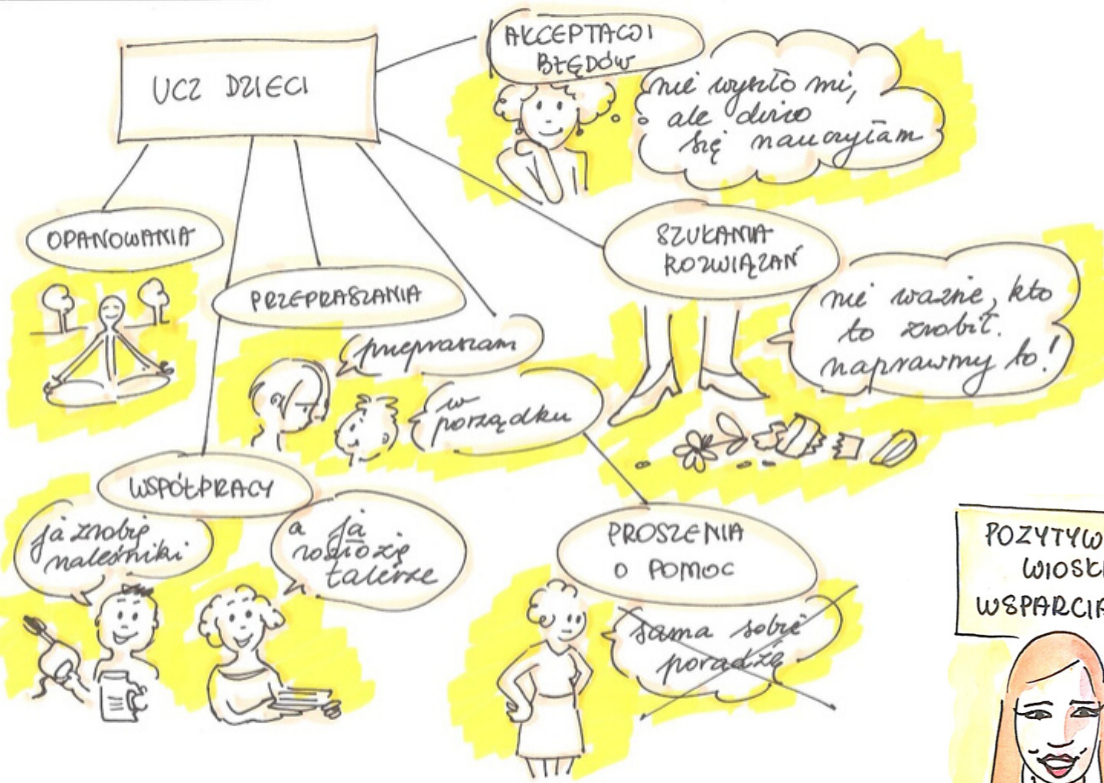 UCZ DZIECI
AKCEPTACJI
BŁĘDÓW
nie wyszło mi,
ale dużo
się nauczyłam
OPANOWANIA
PRZEPRASZANIA
przepraszam
w
porządku
SZUKANIA
ROZWIĄZAŃ
nie ważne, kto
to zrobił.
naprawmy to!
WSPÓŁPRACY
ja zrobię
naleśniki
a ja
rozłożę
talerze
PROSZENIA
O POMOC
sama sobie
poradzę
POZYTYW
WIOSK
WSPARCIA